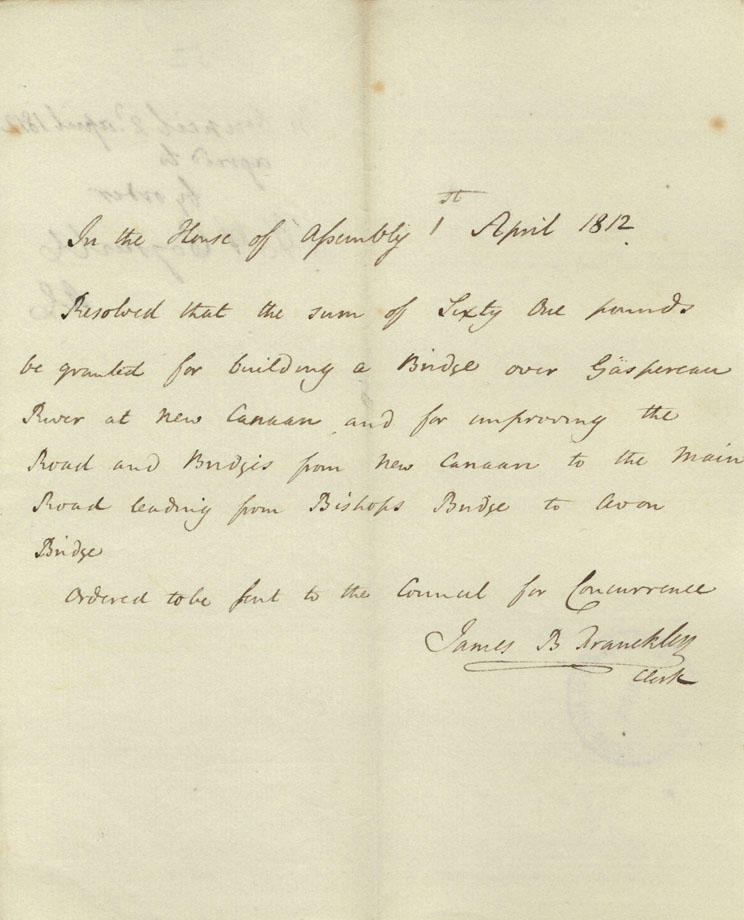 In the House of Assembly 1st April 1812.
Resolved that the sum of Sixty One pounds
be granted for building a Bridge over Gaspereau
River at New Canaan and for improving the
Road and Bridges from New Canaan to the Main
Road leading from Bishops Bridge to Avon
Bridge
Ordered to be sent to the Council for Concurrence
James B Franckley
Clerk